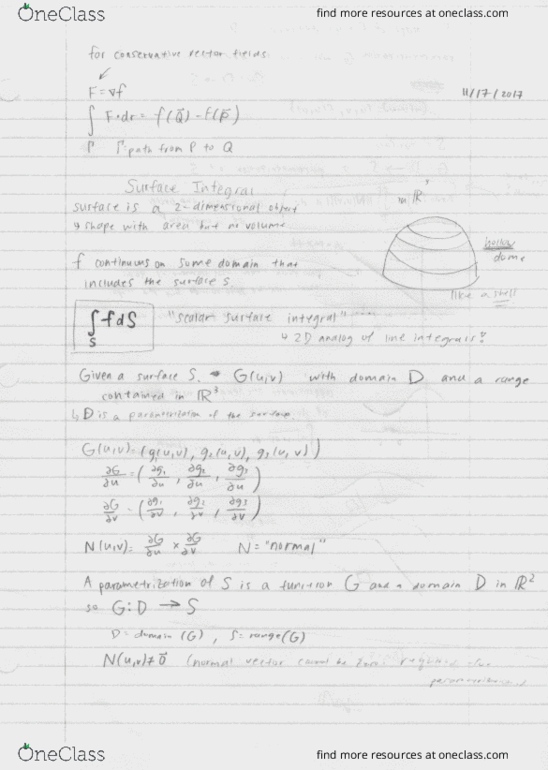 OneClass
find more resources at oneclass.com
for conservative vector fields:
F=∇f
11/17/2017
∫ F•dr = f(Q⃗) - f(P⃗)
Γ Γ path from P to Q
Surface Integral
surface is a 2-dimensional object
↳ shape with area but no volume
in ℝ³
hollow
dome
like a shell
f continuous on some domain that
includes the surface S
∫ f dS
S
"scalar surface integral"
↳ 2D analog of line integrals?
Given a surface S, G(u,v) with domain D and a range
contained in ℝ³
↳ D is a parametrization of the surface
G(u,v) = (g₁(u,v), g₂(u,v), g₃(u,v))
∂G/∂u = (∂g₁/∂u, ∂g₂/∂u, ∂g₃/∂u)
∂G/∂v = (∂g₁/∂v, ∂g₂/∂v, ∂g₃/∂v)
N(u,v) = ∂G/∂u × ∂G/∂v N = "normal"
A parametrization of S is a function G and a domain D in ℝ²
so G: D → S
D = domain (G), S = range(G)
N(u,v) ≠ 0⃗ (normal vector cannot be zero)
OneClass
find more resources at oneclass.com